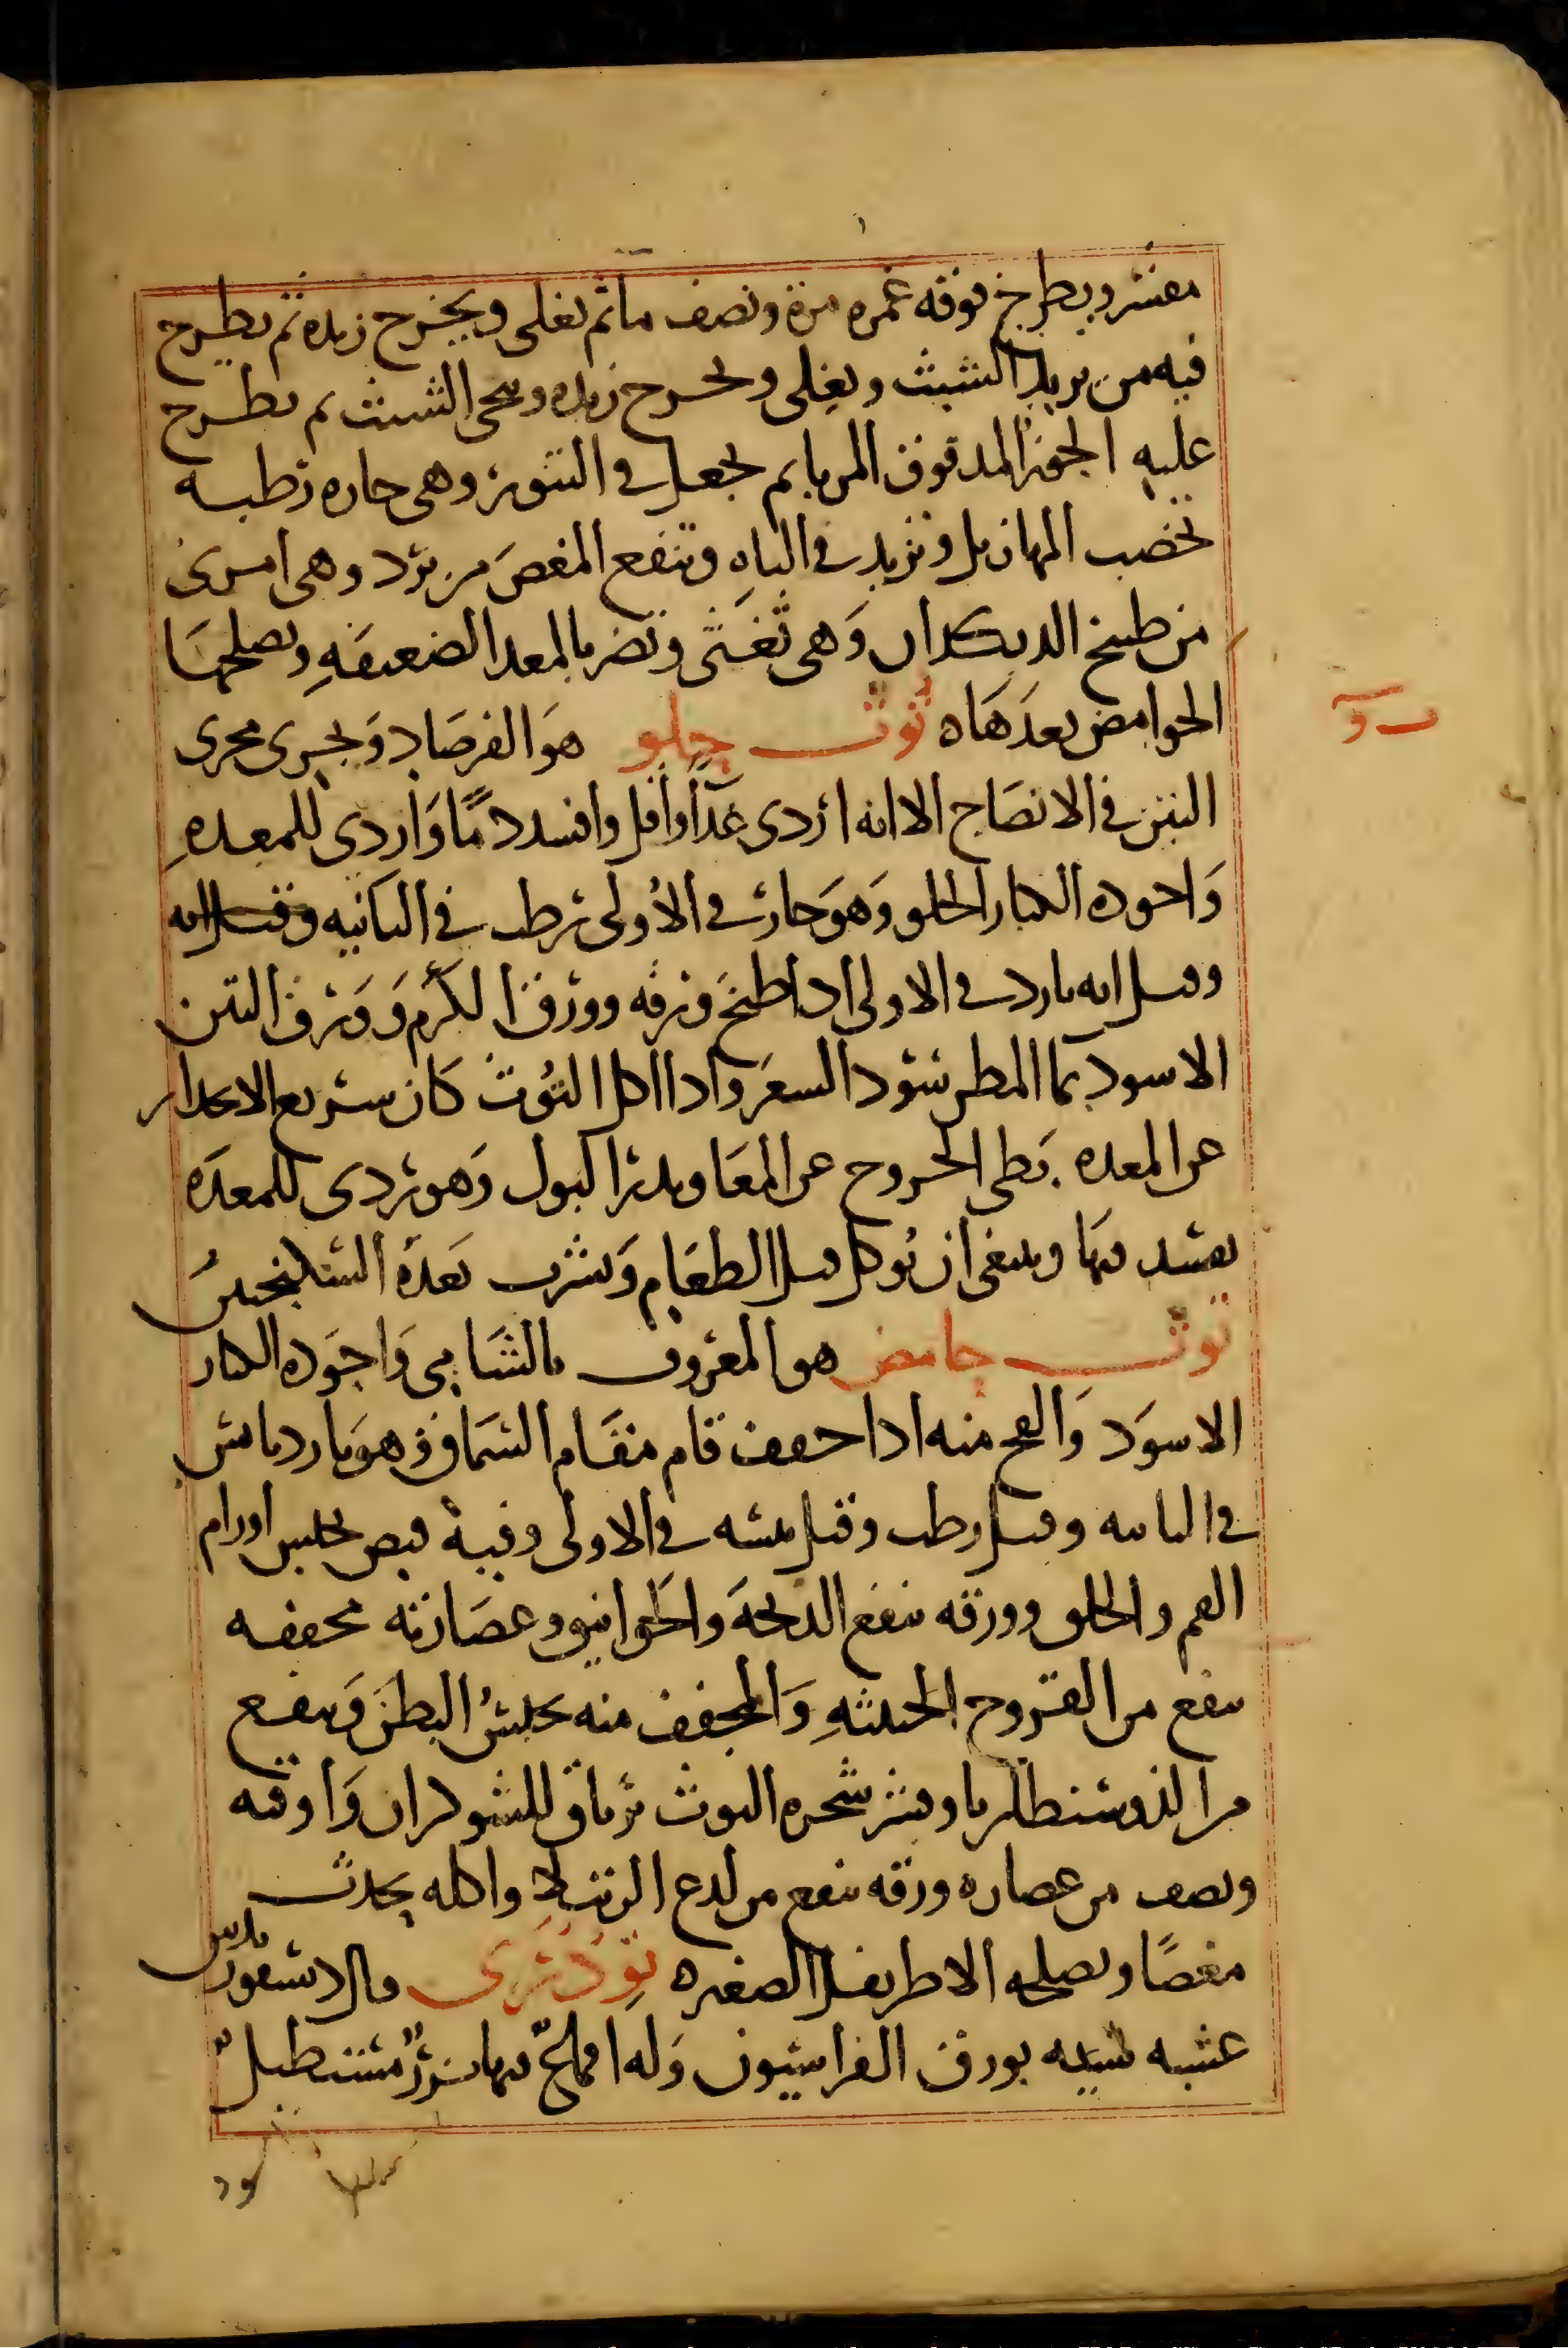 مقشر ويطرح فوقه غمره مرة ونصف ما ثم يغلى ويخرج زبده ثم يطرح
فيه من يريد الشبث ويغلى ويخرج زبده وينحى الشبث ثم يطرح
عليه المدقوق ثم يجعل في التنور وهي حاره رطبه
تخصب وتزيد في الباهِ وتنفع المغصَ من برد وهي امرى
من طبيخ الديكدان وَهي تُغثى وتضر بالمعد الضعيفهِ ويصلحهَا
الحوامض بعدَهَا ه توث حلو هوَ الفرصَاد وَيجرى مجرى
ت و
التين في الانضَاج الا انه اردى غذاً واقل وافسد دمًا وَاردى للمعدهِ
وَاجوده الكبار الحلو وَهوَ حار في الأولى رطب في الثانيه وقيل انه
وقيل انه بارد في الاولى اذا طبخَ ورقه وورق الكرم وَوَرق التين
الاسود بما المطر سَوّد الشعرَ واذا اكل التوث كان سريع الانحدار
عن المعده بَطى الخروج عن المعَا ويدر البول وَهو ردى للمعدَه
يفسد فيها وينبغى ان يُوكل قبل الطعَام وَيشرب بَعدَهُ السكنجبين
توث حامض هو المعروف بالشَامى وَاجوَده الكبار
الاسوَد وَالفج منه اذا جفف قام مقَام السمَاق وَهوَ بارد يابس
في الثانيه وقيل رطب وقيل يبسه في الاولى وفيه قبض يحبس اورام
الفم والحلق وورقه ينفع الذبحَهَ والخوانيق وعصَارته مجففه
ينفع من القروح الخبيثهِ وَالمجفف منه يحبسُ البطنَ وَينفع
من الذوسنطاريا وقشر شجره التوث ترياق للشوكران وَاوقيه
ونصف من عصاره ورقه ينفع من لدغ الرتيلا واكله يحدث
مغصًا ويصلحه الاطريفل الصغير ه تودرى قال ديسقوريدس
عشبه شبيه بورق الفراسيون وَله فيها بزرٌ مستطيلٌ